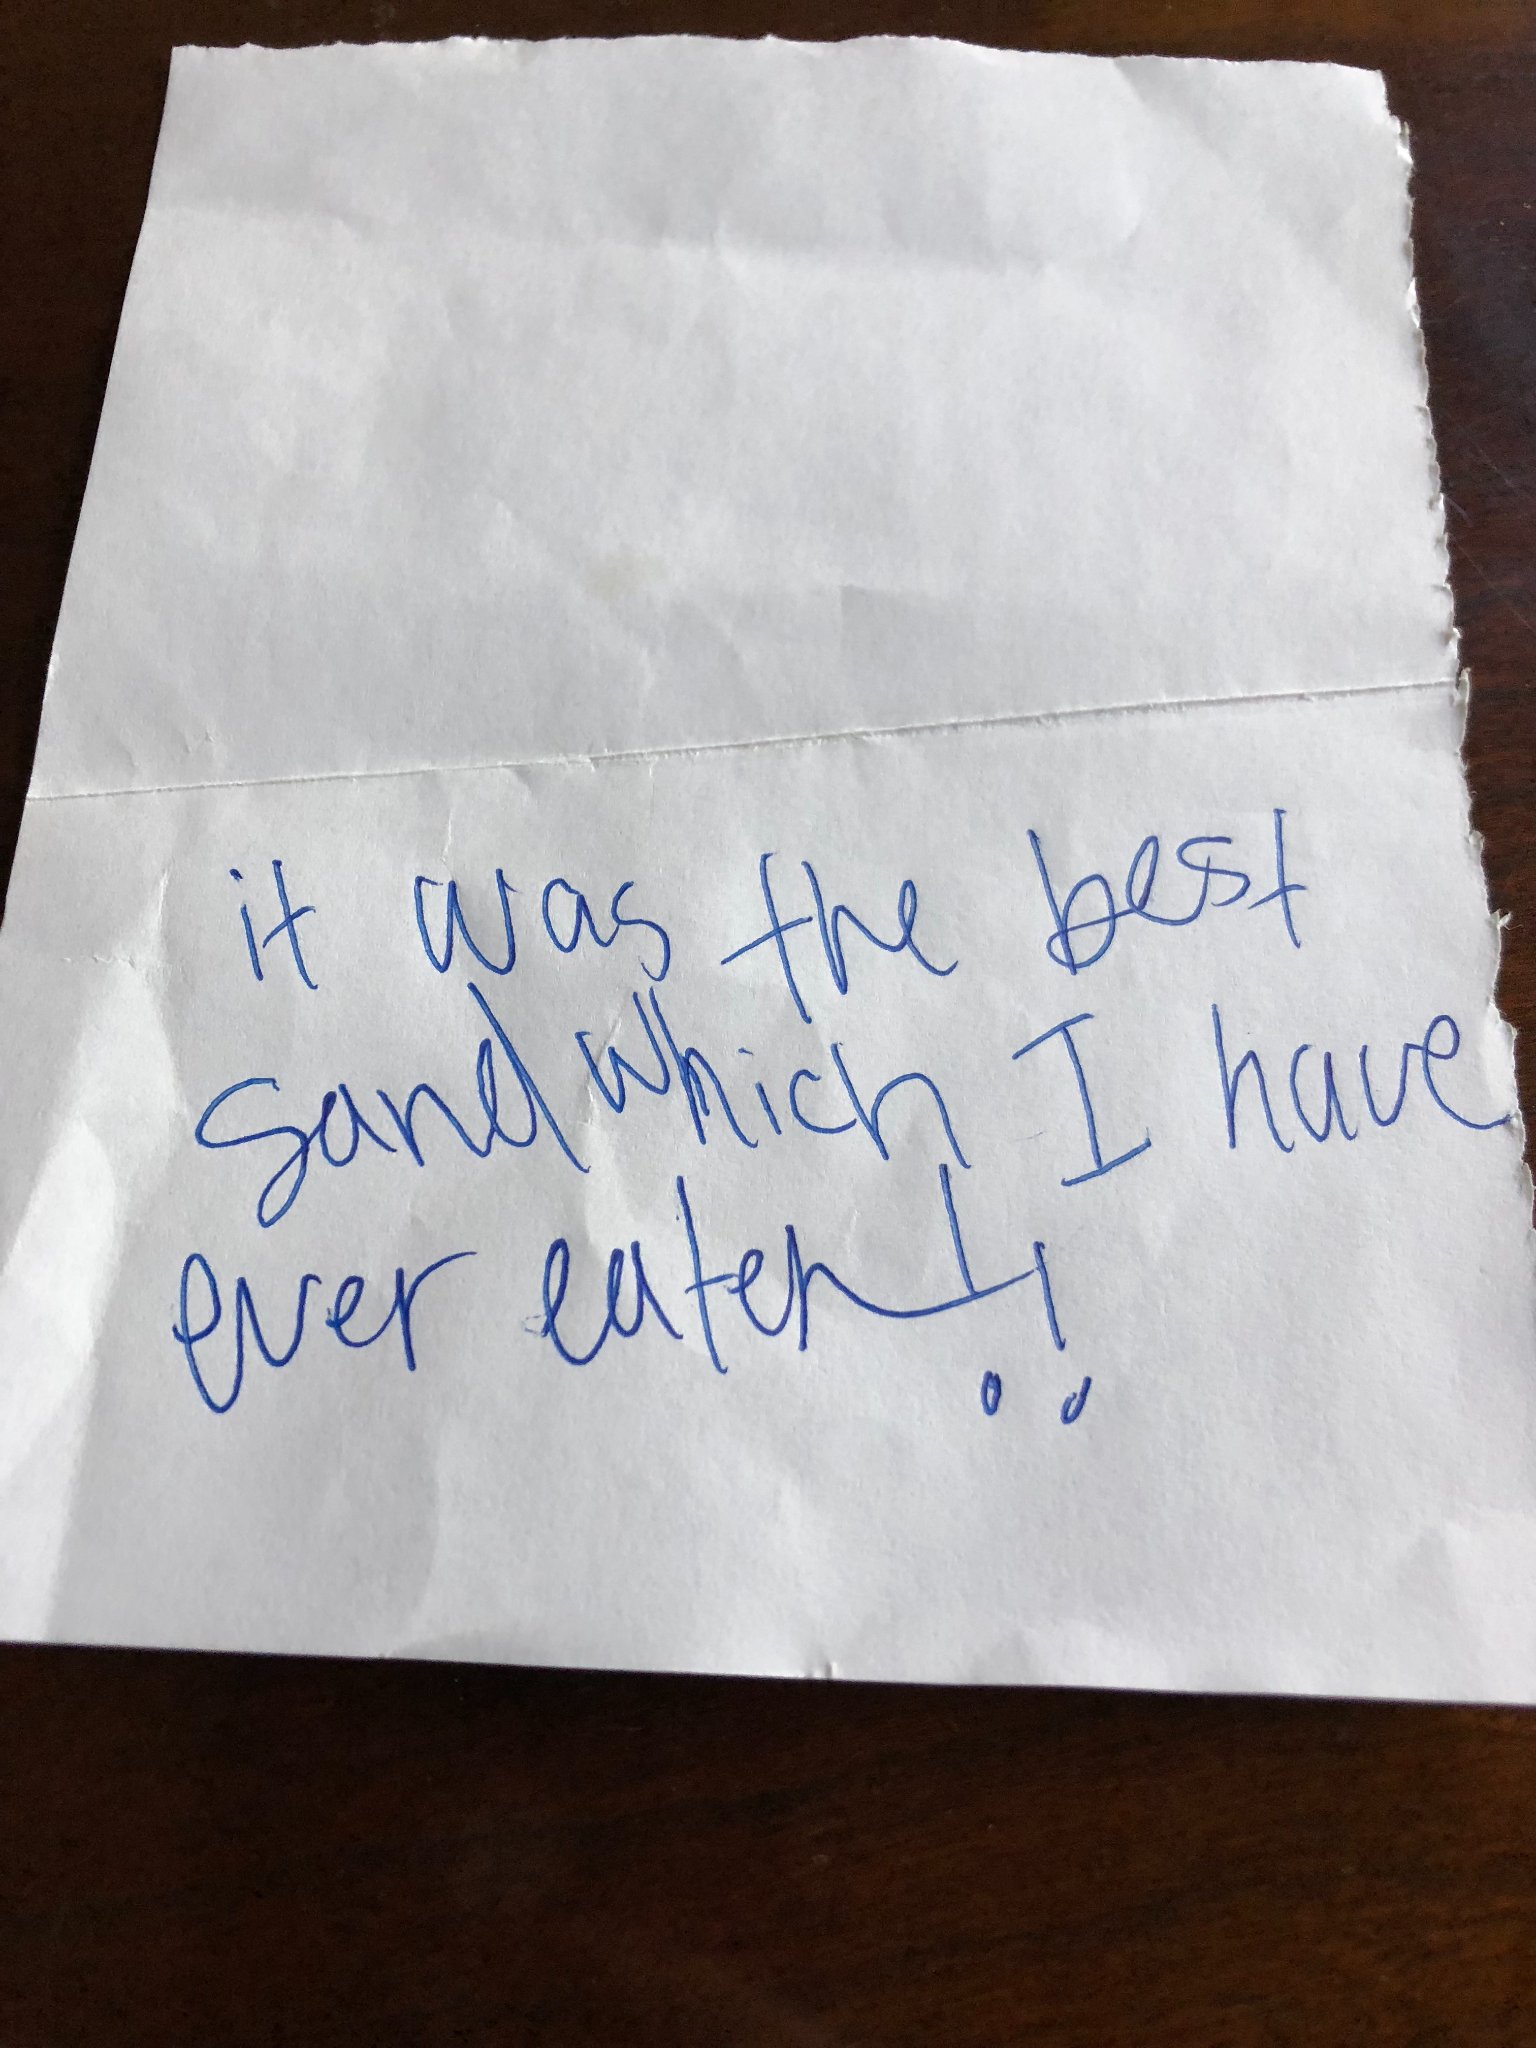 it was the best
sandwhich I have
ever eaten!!